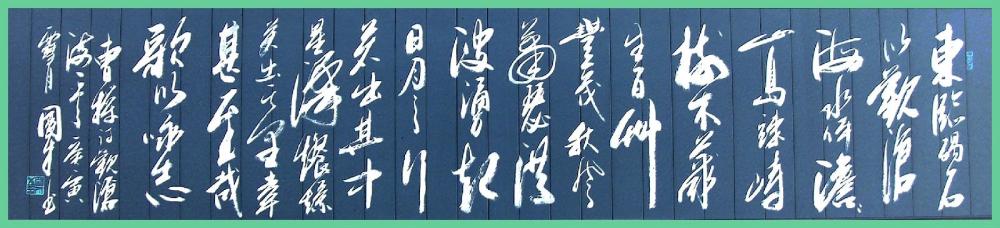 東臨碣石
以觀滄
海水何澹澹
山島竦峙
樹木叢
生百艸
豐茂秋風
蕭瑟洪
波湧起
日月之行
若出其中
星漢燦爛
若出其里幸
甚至哉
歌以詠志
曹操詩觀滄
海于庚寅
雪月國書